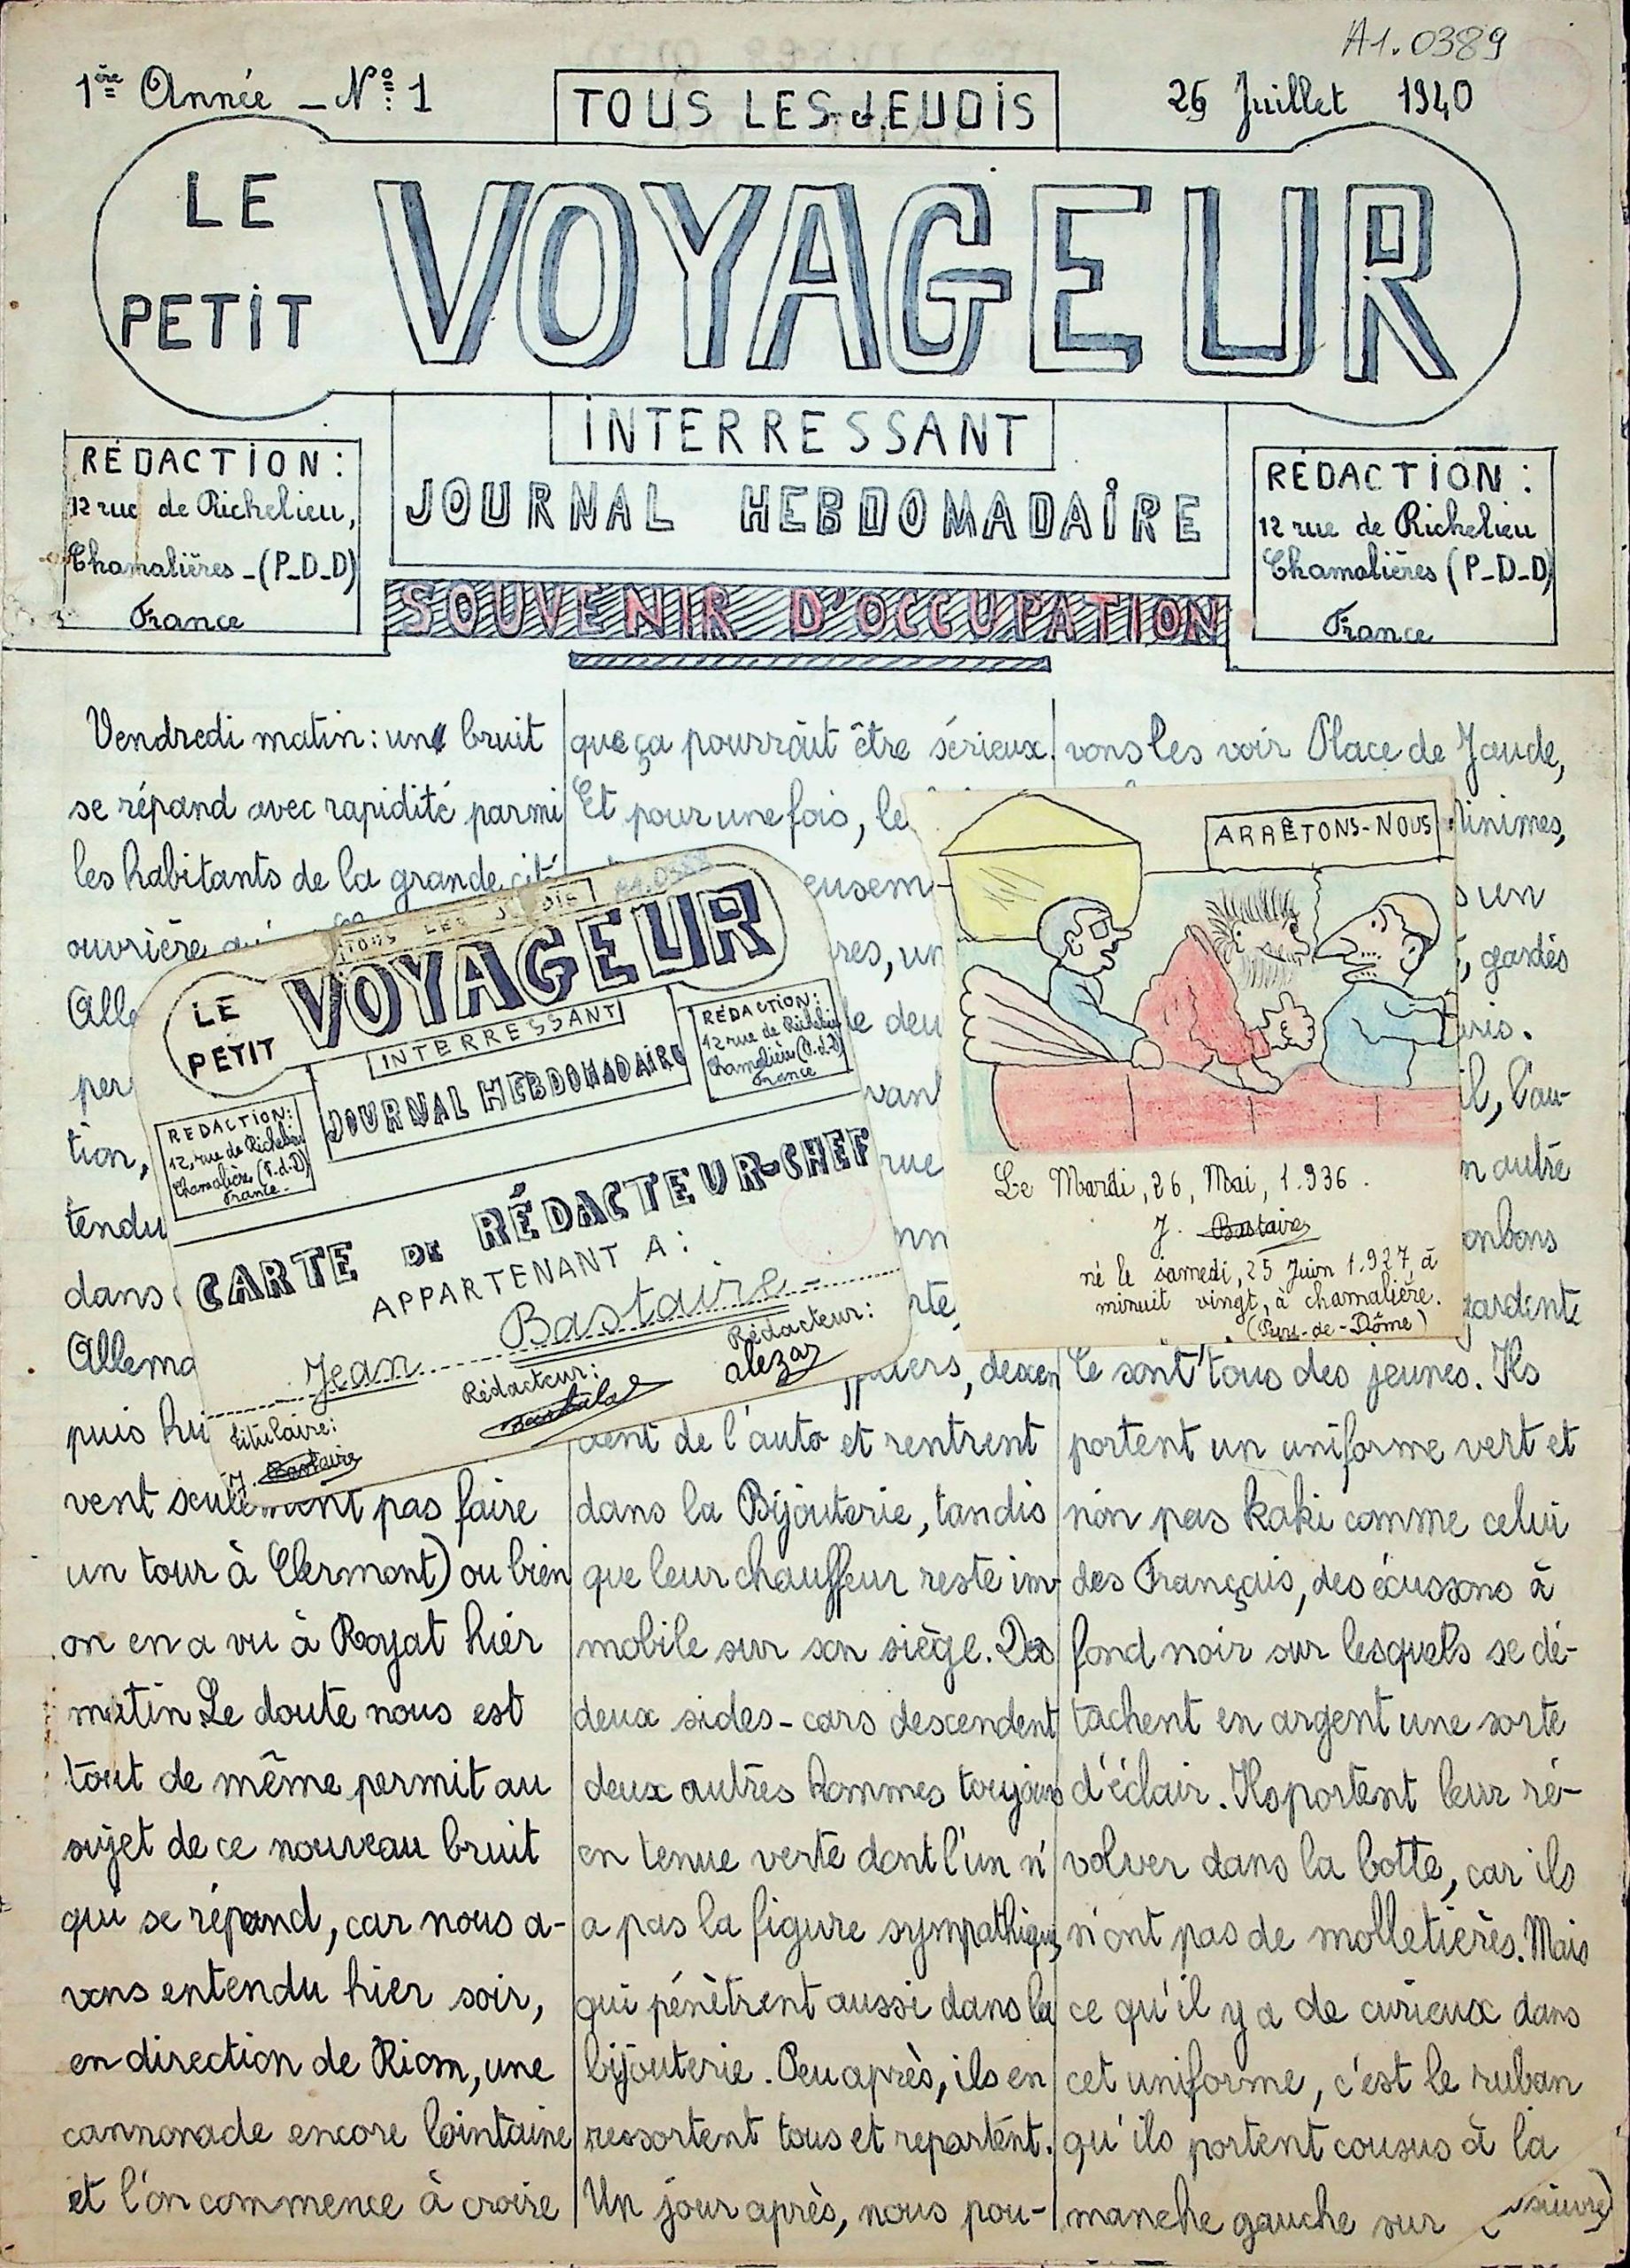 A1.0389
1ère Année - Nº: 1
TOUS LES JEUDIS
25 Juillet 1940
LE
PETIT
VOYAGEUR
INTERRESSANT
JOURNAL HEBDOMADAIRE
RÉDACTION:
12 rue de Richelieu,
Chamalières - (P-D-D)
France
RÉDACTION:
12 rue de Richelieu
Chamalières (P-D-D)
France
SOUVENIR D'OCCUPATION
Vendredi matin: un bruit
se répand avec rapidité parmi
les habitants de la grande cité
ouvrière
tion,
tendu
dans
puis
vent seulement pas faire
un tour à Clermont) ou bien
on en a vu à Royat hier
matin. Le doute nous est
tout de même permit au
sujet de ce nouveau bruit
qui se répand, car nous a-
vons entendu hier soir,
en direction de Riom, une
cannonade encore lointaine
et l'on commence à croire
que ça pourrait être sérieux.
Et pour une fois, le
rue
descen
dent de l'auto et rentrent
dans la Bijouterie, tandis
que leur chauffeur reste im-
mobile sur son siège. Des
deux sides-cars descendent
deux autres hommes toujours
en tenue verte dont l'un n'
a pas la figure sympathique,
qui pénètrent aussi dans la
bijouterie. Peu après, ils en
ressortent tous et repartent.
Un jour après, nous pou-
vons les voir Place de Jaude,
un
gardés
l'au-
autre
Ce sont tous des jeunes. Ils
portent un uniforme vert et
non pas kaki comme celui
des Français, des écussons à
fond noir sur lesquels se dé-
tachent en argent une sorte
d'éclair. Ils portent leur ré-
volver dans la botte, car ils
n'ont pas de molletières. Mais
ce qu'il y a de curieux dans
cet uniforme, c'est le ruban
qu'ils portent cousus à la
manche gauche sur
suivre)
TOUS LES JEUDIS
LE
PETIT
VOYAGEUR
INTERRESSANT
JOURNAL HEBDOMADAIRE
RÉDACTION:
12 rue de Richelieu
Chamalière (P.d.D)
France
RÉDACTION:
12, rue de Richelieu
Chamalière (P.d.D)
France.
CARTE DE RÉDACTEUR-CHEF
APPARTENANT A:
Jean Bastaire
titulaire:
J. Bastaire
Rédacteur:
Rédacteur:
alezar
ARRÊTONS-NOUS
Le Mardi, 26, Mai, 1.936.
J. Bastaire
né le samedi, 25 Juin 1.927, à
minuit vingt, à chamalière.
(Puy-de-Dôme)